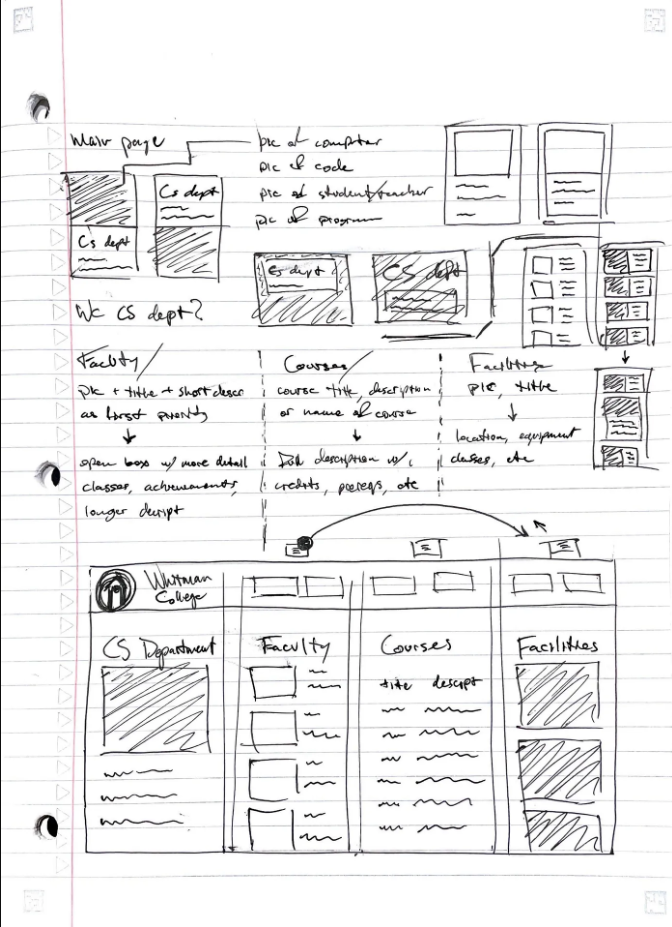 Main page
pic of computer
pic of code
pic of student/teacher
pic of program
CS dept
CS dept
CS dept
CS dept
CS dept?
Faculty
pic + title + short descr
as first priority
open box w/ more detail
classes, achievements,
longer descript
Courses
course title, description
or name of course
Full description w/
credits, prereqs, etc
Facilities
pic, title
location, equipment
classes, etc
Whitman
College
CS Department
Faculty
Courses
title descript
Facilities